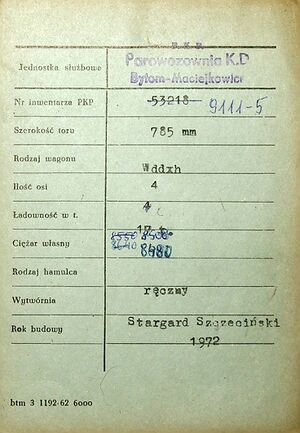 P. K. P.
Jednostka służbowa
Parowozownia K.D
Bytom-Maciejkowice
Nr inwentarza PKP 53218 9111-5
Szerokość toru 785 mm
Rodzaj wagonu Wddxh
Ilość osi 4
Ładowność w t. 4
17 t.
Ciężar własny 8480
Rodzaj hamulca
ręczny
Wytwórnia
Rok budowy Stargard Szczeciński
1972
btm 3 1192/62 6000